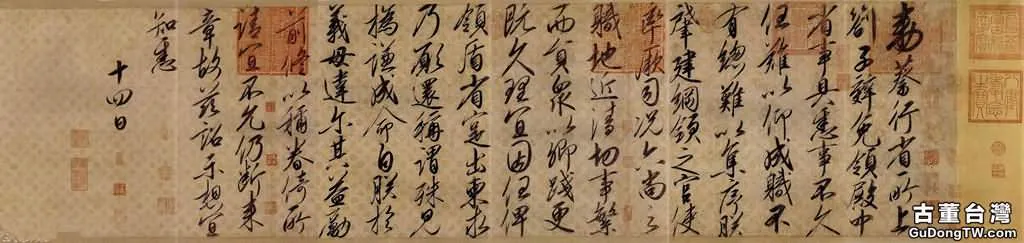 敕蔡行省所上
劄子辭免領殿中
省事具悉事不久
任難以仰成職不
有總難以集序朕
肇建綱領之官使
率厥司况六尚之
職地近清切事繁
而員衆以卿踐更
既久理宜因任俾
領盾省寔出柬求
乃願還稱謂殊見
撝謙成命自朕於
義毋違尔其益勵
前修以稱眷倚所
請宜不允仍斷來
章故茲詔示想宜
知悉
十四日
古董台灣
GuDongTW.com